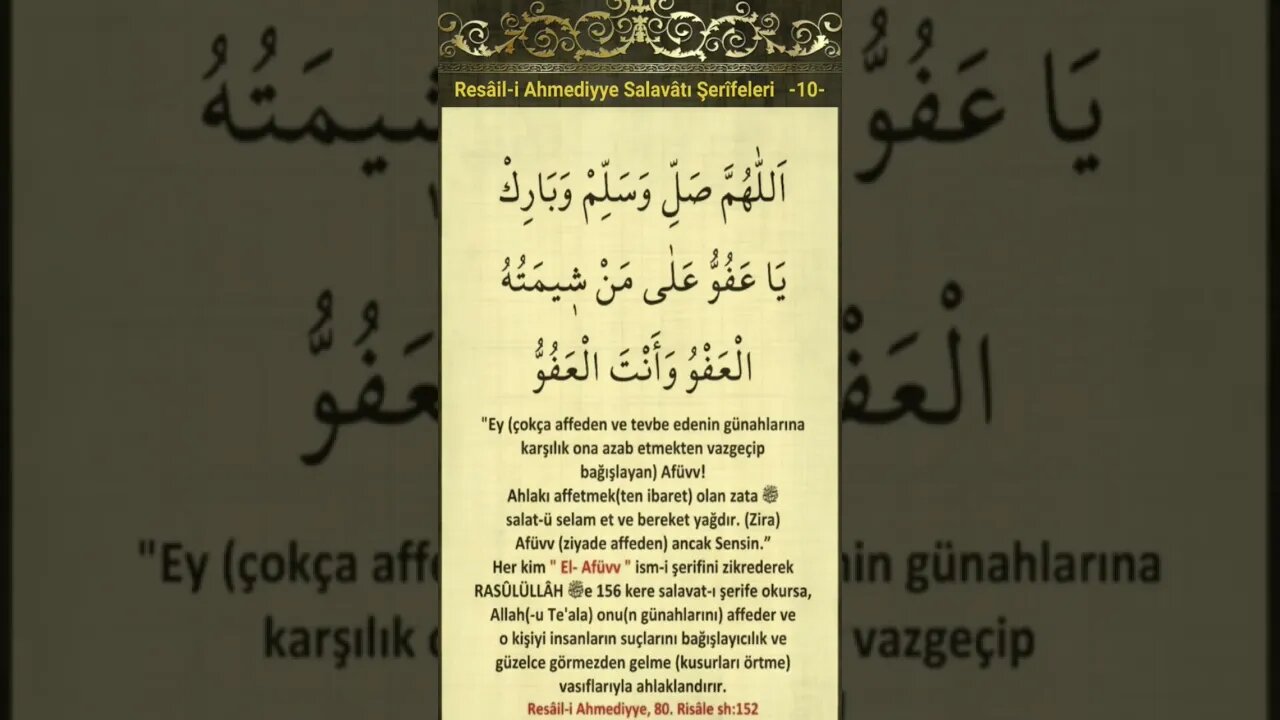 Resâil-i Ahmediyye Salavâtı Şerîfeleri -10-
اَللّٰهُمَّ صَلِّ وَسَلِّمْ وَبَارِكْ
يَا عَفُوُّ عَلٰى مَنْ شٖيمَتُهُ
الْعَفْوُ وَأَنْتَ الْعَفُوُّ
"Ey (çokça affeden ve tevbe edenin günahlarına
karşılık ona azab etmekten vazgeçip
bağışlayan) Afüvv!
Ahlakı affetmek(ten ibaret) olan zata ﷺ
salat-ü selam et ve bereket yağdır. (Zira)
Afüvv (ziyade affeden) ancak Sensin.”
Her kim " El- Afüvv " ism-i şerifini zikrederek
RASÛLÜLLÂH ﷺe 156 kere salavat-ı şerife okursa,
Allah(-u Te'ala) onu(n günahlarını) affeder ve
o kişiyi insanların suçlarını bağışlayıcılık ve
güzelce görmezden gelme (kusurları örtme)
vasıflarıyla ahlaklandırır.
Resâil-i Ahmediyye, 80. Risâle sh:152